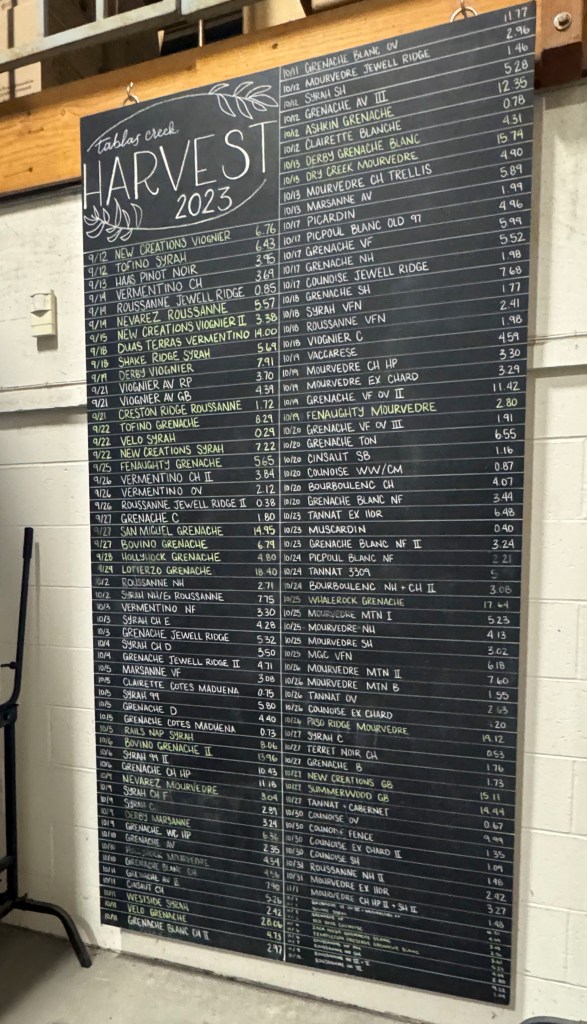 tablas creek
HARVEST
2023
9/12 NEW CREATIONS VIOGNIER 6.76
9/12 TOFINO SYRAH 6.43
9/13 HAAS PINOT NOIR 3.95
9/14 VERMENTINO CH 3.69
9/14 ROUSSANNE JEWELL RIDGE 0.85
9/14 NEVAREZ ROUSSANNE 5.57
9/15 NEW CREATIONS VIOGNIER II 3.38
9/18 DUAS TERRAS VERMENTINO 14.00
9/18 SHAKE RIDGE SYRAH 5.69
9/19 DERBY VIOGNIER 7.91
9/21 VIOGNIER AV RP 3.70
9/21 VIOGNIER AV GB 4.39
9/21 CRESTON RIDGE ROUSSANNE 1.72
9/22 TOFINO GRENACHE 8.29
9/22 VELO SYRAH 0.29
9/22 NEW CREATIONS SYRAH 7.22
9/25 FENAUGHTY GRENACHE 5.65
9/26 VERMENTINO CH II 3.84
9/26 VERMENTINO OV 2.12
9/26 ROUSSANNE JEWELL RIDGE II 0.38
9/27 GRENACHE C 11.80
9/27 SAN MIGUEL GRENACHE 14.95
9/27 BOVINO GRENACHE 6.79
9/28 HOLLYHOCK GRENACHE 4.80
9/29 LOTIERZO GRENACHE 18.40
10/2 ROUSSANNE NH 2.71
10/2 SYRAH NH/G ROUSSANNE 7.75
10/3 VERMENTINO NF 3.30
10/3 SYRAH CH E 4.28
10/3 GRENACHE JEWELL RIDGE 5.32
10/4 SYRAH CH D 3.50
10/4 GRENACHE JEWELL RIDGE II 4.71
10/5 MARSANNE VF 3.08
10/5 CLAIRETTE COTES MADUENA 0.75
10/5 SYRAH 99 5.80
10/5 GRENACHE D 4.40
10/5 GRENACHE COTES MADUENA 0.73
10/5 RAILS NAP SYRAH 8.06
10/6 BOVINO GRENACHE II 13.96
10/6 SYRAH 99 II 10.43
10/6 GRENACHE CH HP 11.18
10/9 NEVAREZ MOURVEDRE 3.04
10/9 SYRAH CH F 2.89
10/9 SYRAH C 3.24
10/9 DERBY MARSANNE
10/9 GRENACHE WC HP 2.35
10/10 GRENACHE AV 4.54
10/10 MOURVEDRE
10/10 GRENACHE BLANC
10/11 GRENACHE AV II
10/11 CINSAUT CH
10/11 WESTSIDE SYRAH 2.42
10/11 VELO GRENACHE 28.06
10/11 GRENACHE BLANC CH II 4.73
2.97
10/11 GRENACHE BLANC OV 11.77
10/12 MOURVEDRE JEWELL RIDGE 2.96
10/12 SYRAH SH 1.46
10/12 GRENACHE AV III 5.28
10/12 ASHKIN GRENACHE 12.35
10/12 CLAIRETTE BLANCHE 0.78
10/13 DERBY GRENACHE BLANC 4.31
10/13 DRY CREEK MOURVEDRE 15.74
10/13 MOURVEDRE CH TRELLIS 4.90
10/13 MARSANNE AV 5.89
10/17 PICARDIN 1.99
10/17 PICPOUL BLANC OLD 97 4.96
10/17 GRENACHE VF 5.99
10/17 GRENACHE NH 5.52
10/17 COUNOISE JEWELL RIDGE 1.98
10/18 GRENACHE SH 7.68
10/18 SYRAH VFN 1.77
10/18 ROUSSANNE VFN 2.41
10/18 VIOGNIER C 1.98
10/19 VACCARESE 4.59
10/19 MOURVEDRE CH HP 3.30
10/19 MOURVEDRE EX CHARD 3.29
10/19 GRENACHE VF OV II 11.42
10/19 FENAUGHTY MOURVEDRE 2.80
10/20 GRENACHE VF OV III 1.91
10/20 GRENACHE TON 6.55
10/20 CINSAUT SB 1.16
10/20 COUNOISE WW/CM 0.87
10/20 BOURBOULENC CH 4.07
10/20 GRENACHE BLANC NF 3.44
10/23 TANNAT EX HOR 6.48
10/23 MUSCARDIN 0.40
10/23 GRENACHE BLANC NF II 3.24
10/24 PICPOUL BLANC NF 2.21
10/24 TANNAT 3309
10/24 BOURBOULENC NH + CH II 3.08
10/25 WHALEROCK GRENACHE 17.64
10/25 MOURVEDRE MTN I 5.23
10/25 MOURVEDRE NH 4.13
10/25 MOURVEDRE SH 3.02
10/25 MGC VFN 6.18
10/26 MOURVEDRE MTN II 7.60
10/26 MOURVEDRE MTN B 1.55
10/26 TANNAT OV 2.63
10/26 COUNOISE EX CHARD
10/26 PASO RIDGE MOURVEDRE 19.12
10/27 SYRAH C 0.53
10/27 TERRET NOIR CH 1.76
10/27 GRENACHE B 1.73
10/27 NEW CREATIONS GB 15.11
10/27 SUMMERWOOD GB 14.44
10/27 TANNAT + CABERNET 0.67
10/30 COUNOISE OV 9.99
10/30 COUNOISE FENCE 1.35
10/30 COUNOISE EX CHARD II 1.09
10/30 COUNOISE SH 1.98
10/31 ROUSSANNE NH II 2.42
10/31 MOURVEDRE EX HOR 3.27
11/1 MOURVEDRE CH HP II + SH II 1.48